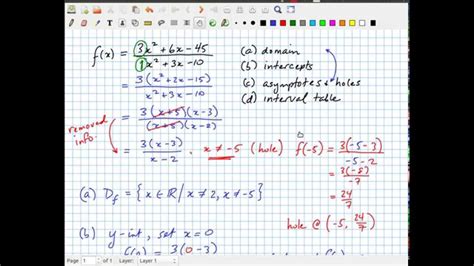 f(x) = 3x² + 6x - 45 / 1x² + 3x - 10
= 3(x² + 2x - 15) / x² + 3x - 10
= 3(x+5)(x-3) / (x+5)(x-2)
= 3(x-3) / x-2 , x ≠ -5 (hole)
removed info.
(a) domain
(b) intercepts
(c) asymptotes & holes
(d) interval table
f(-5) = 3(-5-3) / -5-2
= 3(-8) / -7
= 24/7
hole @ (-5, 24/7)
(a) D_f = { x ∈ ℝ | x ≠ 2, x ≠ -5 }
(b) y-int, set x = 0
f(0) = 3(0-3)
x-int, set
Page 1 of 1 Layer: Layer 1